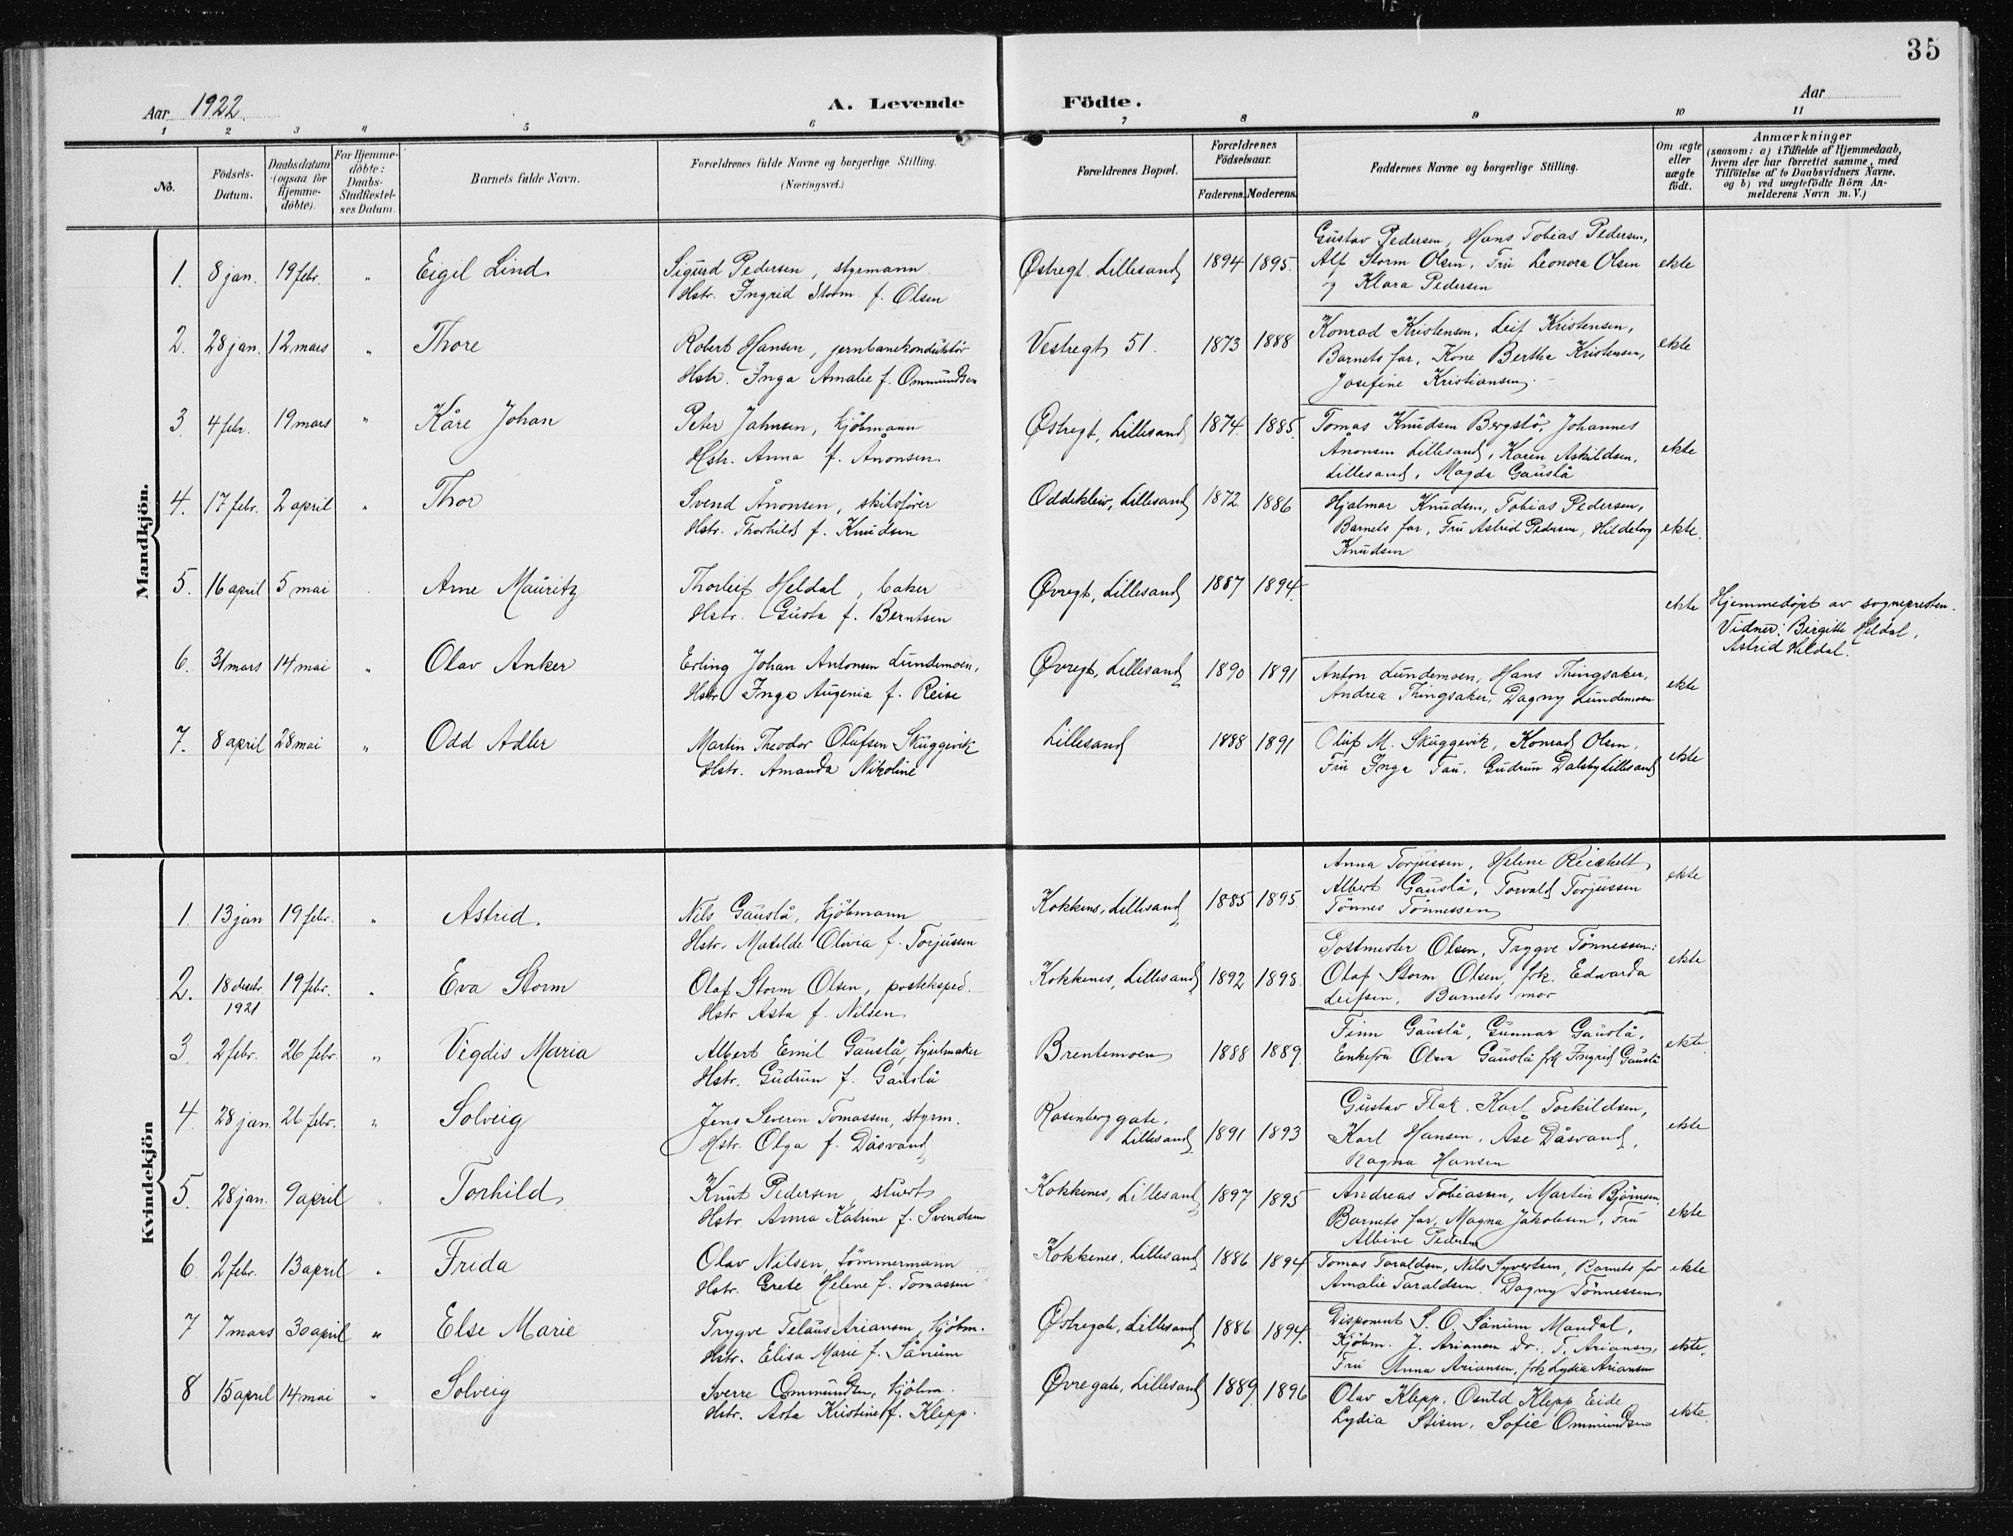 35
Aar 1922.
A. Levende Födte.
Aar
1 2 3 4 5 6 7 8 9 10 11
No.
Födsels-Datum.
Daabsdatum (ogsaa for Hjemme-döbte).
For Hjemme-döbte: Daabs-Stadfæstel-ses Datum.
Barnets fulde Navn.
Forældrenes fulde Navne og borgerlige Stilling.
(Næringsvei.)
Forældrenes Bopæl.
Forældrenes Födselsaar.
Faderens. Moderens.
Faddernes Navne og borgerlige Stilling.
Om ægte eller uægte födt.
Anmærkninger
(saasom: a) i Tilfælde af Hjemmedaab,
hvem der har forrettet samme, med
Tilföielse af to Daabsvidners Navne.
og b) ved uægtefödte Börn An-
melderens Navn m. V.)
Mandkjön.
1. 8 jan. 19 febr. " Eigil Lind
Sigurd Pedersen, styrmann
Hstr. Ingrid Storm f. Olsen
Østregt. Lillesand 1894 1895.
Gustav Pedersen, Hans Tobias Pedersen,
Alf Storm Olsen, Fru Leonora Olsen
og Klara Pedersen
ekte
2. 28 jan. 12 mars " Thore
Robert Hansen, jernbanekonduktör
Hstr. Inga Amalie f. Ommundsen
Vestregt 51. 1873 1888
Konrad Kristensen, Leif Kristensen,
Barnets far, Kone Bertha Kristensen,
Josefine Kristiansen.
ekte
3. 4 febr. 19 mars " Kåre Johan
Peter Jahnsen, kjöbmann
Hstr. Anna f. Ånonsen
Østregt, Lillesand 1874. 1885.
Tomas Knudsen Bergstö, Johannes
Ånonsen Lillesand, Karen Askildsen,
Lillesand, Magda Gauslå
ekte
4. 17 febr. 2 april " Thor
Svend Ånonsen, skibsförer
Hstr. Thorhild f. Knudsen
Oddekleiv, Lillesand 1872. 1886
Hjalmar Knudsen, Tobias Pedersen,
Barnets far, Fru Astrid Pedersen, Hildeborg
Knudsen
ekte.
5. 16 april 5 mai Arne Mauritz
Thorleif Heldal, baker
Hstr. Gusta f. Berntsen
Øvregt, Lillesand 1887 1894.
ekte
Hjemmedøpt av sognepresten.
Vidner: Birgitte Heldal,
Astrid Heldal.
6. 31 mars 14 mai " Olav Anker
Erling Johan Antonsen Lundemoen,
Hstr. Inga Augenia f. Reise
Øvregt, Lillesand 1890 1891
Anton Lundemoen, Hans Thingsaker,
Andrea Thingsaker, Dagny Lundemoen
ekte
7. 8 april 28 mai " Odd Adler
Martin Theodor Olufsen Skuggevik
Hstr. Amanda Nikoline
Lillesand 1888 1891
Oluf M. Skuggevik, Konrad Olsen,
Fru Inga Tau. Gudrun Dalsby Lillesand
ekte
Kvindekjön
1. 13 jan 19 febr. " Astrid.
Nils Gauslå, Kjöbmann
Hstr. Matilde Olivia f. Torjussen
Kokkens, Lillesand 1885 1895.
Anna Torjussen, Helene Reichelt,
Albert Gauslå, Torvald Torjussen
Tönnes Tönnessen
ekte
2. 18 desbr. 1921 19 febr. " Eva Storm
Olaf Storm Olsen, posteksped.
Hstr Asta f. Nilsen
Kokkenes, Lillesand 1892 1898.
Postmester Olsen, Trygve Tönnessen:
Olaf Storm Olsen, frk. Edwarda
Leifsen, Barnets mor
ekte
3. 2 febr. 26 febr. " Vigdis Maria
Albert Emil Gauslå, hjulmaker
Hstr. Gudrun f. Gauslå
Brentemoen 1888 1889.
Finn Gauslå, Gunnar Gauslå,
Enkefru Olava Gauslå frk Ingrid Gauslå
ekte.
4. 28 jan. 26 febr. " Solveig
Jens Severin Tomassen, styrm.
Hstr. Olga f. Dåsvand
Rosenberggate, Lillesand 1891 1893
Gustav Flak. Karl Torkildsen,
Karl Hansen. Åse Dåsvand,
Ragna Hansen
ekte
5. 28 jan. 9 april " Torhild
Knut Pedersen, stuert
Hstr. Anna Katrine f. Svendsen
Kokkenes, Lillesand 1897 1895
Andreas Tobiassen, Martin Björnsen,
Barnets far, Magna Jakobsen, Fru
Albine Pedersen
ekte
6. 2 febr. 13 april " Frida
Olav Nilsen, tömmermann
Hstr. Grete Helene f. Tomassen
Kokkenes, Lillesand 1886 1894
Tomas Taraldsen, Nils Syvertsen, Barnets far
Amalie Taraldsen. Dagny Tönnessen
ekte
7 7 mars 30 april " Else Marie
Trygve Telaus Ariansen, kjöbm.
Hstr. Elisa Marie f. Sånum
Østregate, Lillesand 1886 1894.
Disponent S. O. Sånum Mandal,
Kjöbm. J. Ariansen dr. T. Ariansen,
Fru Anna Ariansen, frk Lydia Ariansen
ekte.
8 15 april 14 mai " Solveig
Sverre Ommundsen, kjöbm.
Hstr. Asta Kristine f. Klepp.
Øvregate, Lillesand 1889. 1896
Olav Klepp, Osuld Klepp Eide
Lydia Stisen, Sofie Ommundsen
ekte.